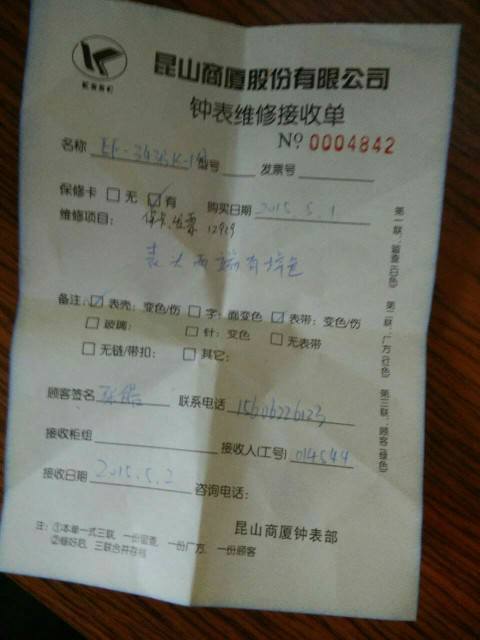 KSSC
昆山商厦股份有限公司
钟表维修接收单
№ 0004842
名称 型号 发票号
保修卡 □无 ☑有 购买日期 2015.5.1
维修项目： 12919
表头两端有掉色
备注：☑表壳：变色/伤 □字：面变色 ☑表带：变色/伤
□玻璃： □针：变色 □无表带
□无链/带扣： □其它：
顾客签名 联系电话 15606226123
接收柜组 接收人(工号) 014544
接收日期 2015.5.2 咨询电话：
昆山商厦钟表部
注：①本单一式三联，一份留查，一份厂方，一份顾客
②修好后，三联合并存档
第一联：留查(白色) 第二联：厂方(红色) 第三联：顾客(绿色)